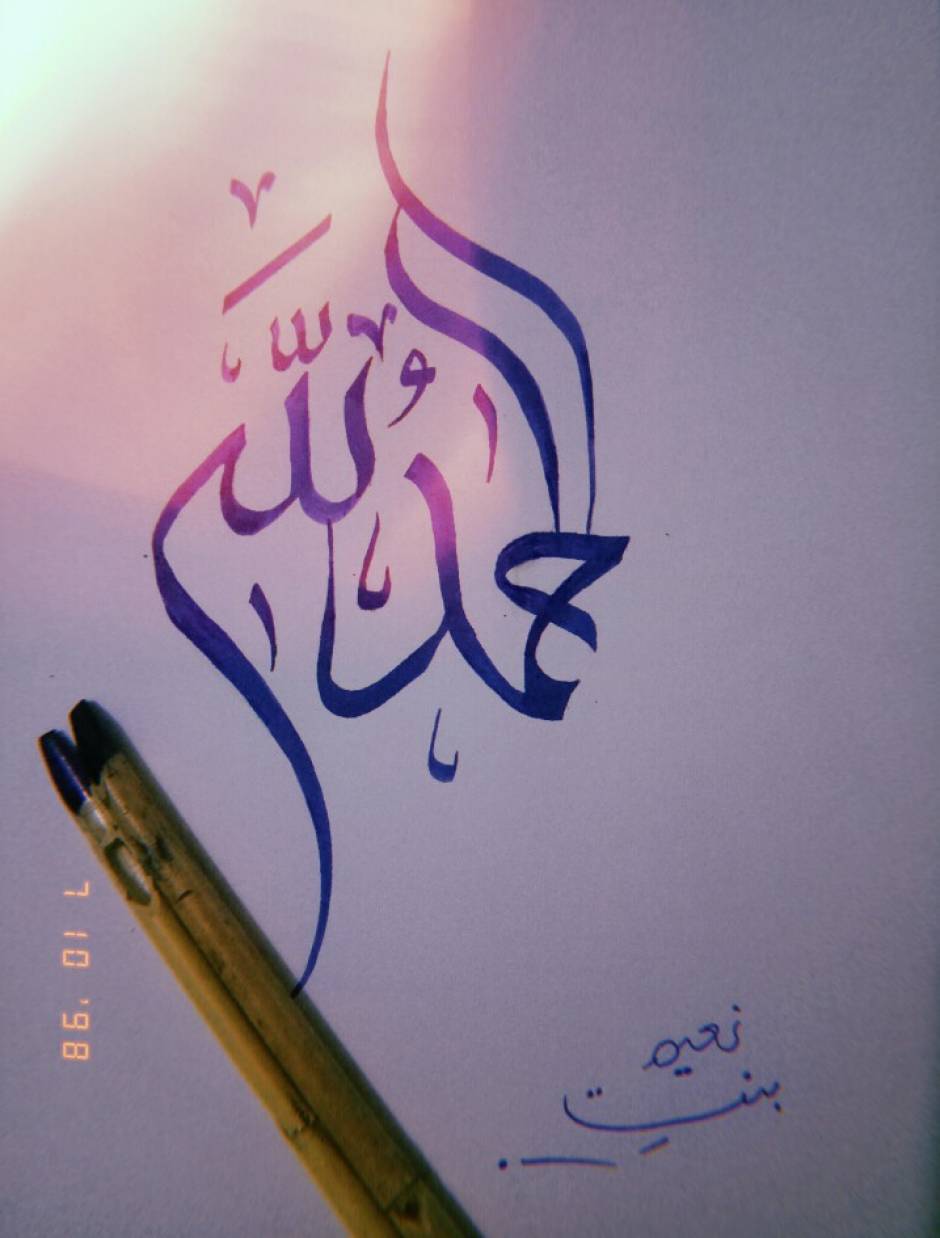 الحمد لله
نعيم
بنت
7 10 '98